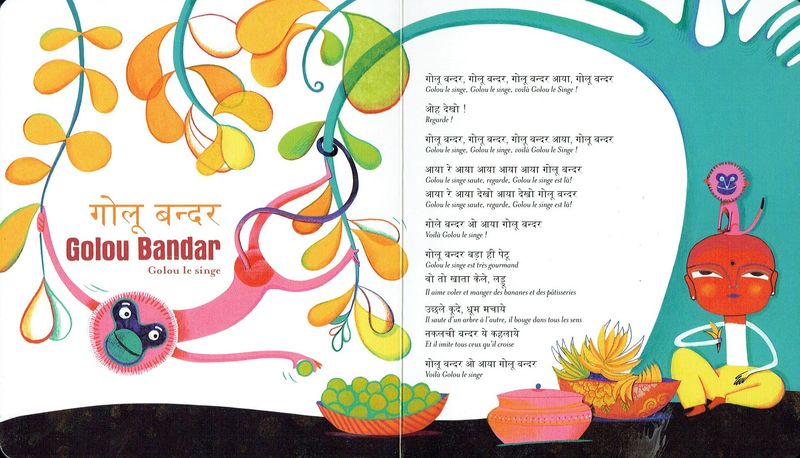 गोलू बन्दर
Golou Bandar
Golou le singe
गोलू बन्दर, गोलू बन्दर, गोलू बन्दर आया, गोलू बन्दर
Golou le singe, Golou le singe, voilà Golou le Singe !
ओह देखो !
Regarde !
गोलू बन्दर, गोलू बन्दर, गोलू बन्दर आया, गोलू बन्दर
Golou le singe, Golou le singe, voilà Golou le Singe !
आया रे आया आया आया आया गोलू बन्दर
Golou le singe saute, regarde, Golou le singe est là!
आया रे आया देखो आया देखो गोलू बन्दर
Golou le singe saute, regarde, Golou le singe est là!
गोले बन्दर ओ आया गोलू बन्दर
Voilà Golou le singe !
गोलू बन्दर बड़ा ही पेटू
Golou le singe est très gourmand
वो तो खाता केले, लड्डू
Il aime voler et manger des bananes et des pâtisseries
उछले कूदे, धूम मचाये
Il saute d'un arbre à l'autre, il bouge dans tous les sens
नकलची बन्दर ये कहलाये
Et il imite tous ceux qu'il croise
गोलू बन्दर ओ आया गोलू बन्दर
Voilà Golou le singe